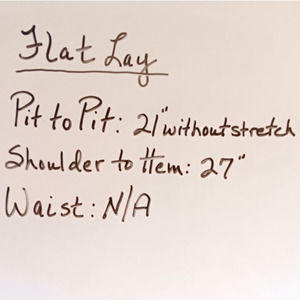 Flat Lay
Pit to Pit: 21" without stretch
Shoulder to Hem: 27"
Waist: N/A